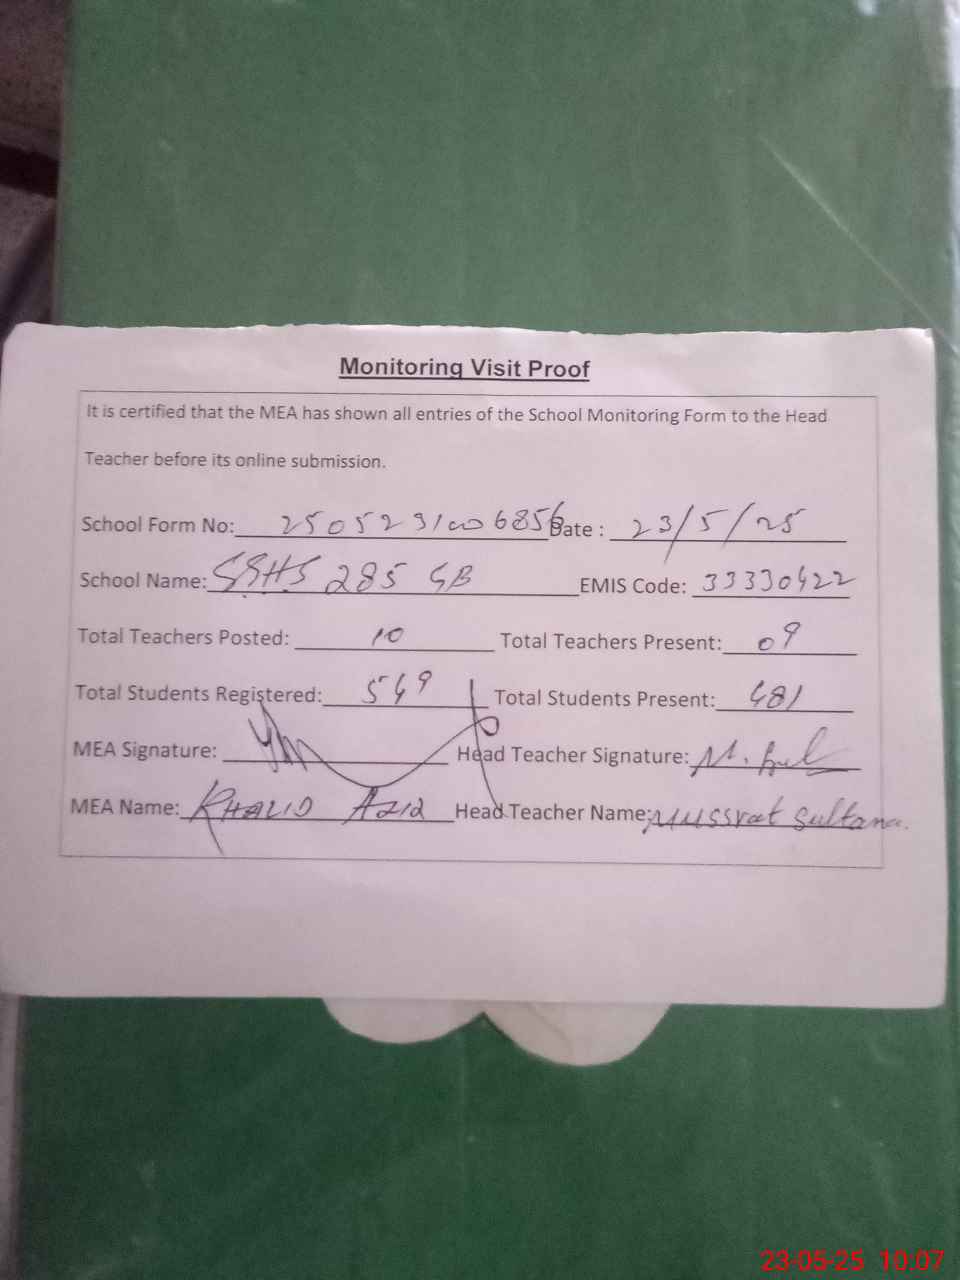 Monitoring Visit Proof
It is certified that the MEA has shown all entries of the School Monitoring Form to the Head
Teacher before its online submission.
School Form No: 2505231006856 Date : 23/5/25
School Name: GGHS 285 GB EMIS Code: 33330422
Total Teachers Posted: 10 Total Teachers Present: 09
Total Students Registered: 549 Total Students Present: 481
MEA Signature: Head Teacher Signature:
MEA Name: KHALID AZIZ Head Teacher Name: Mussrat Sultana.
23-05-25 10:07